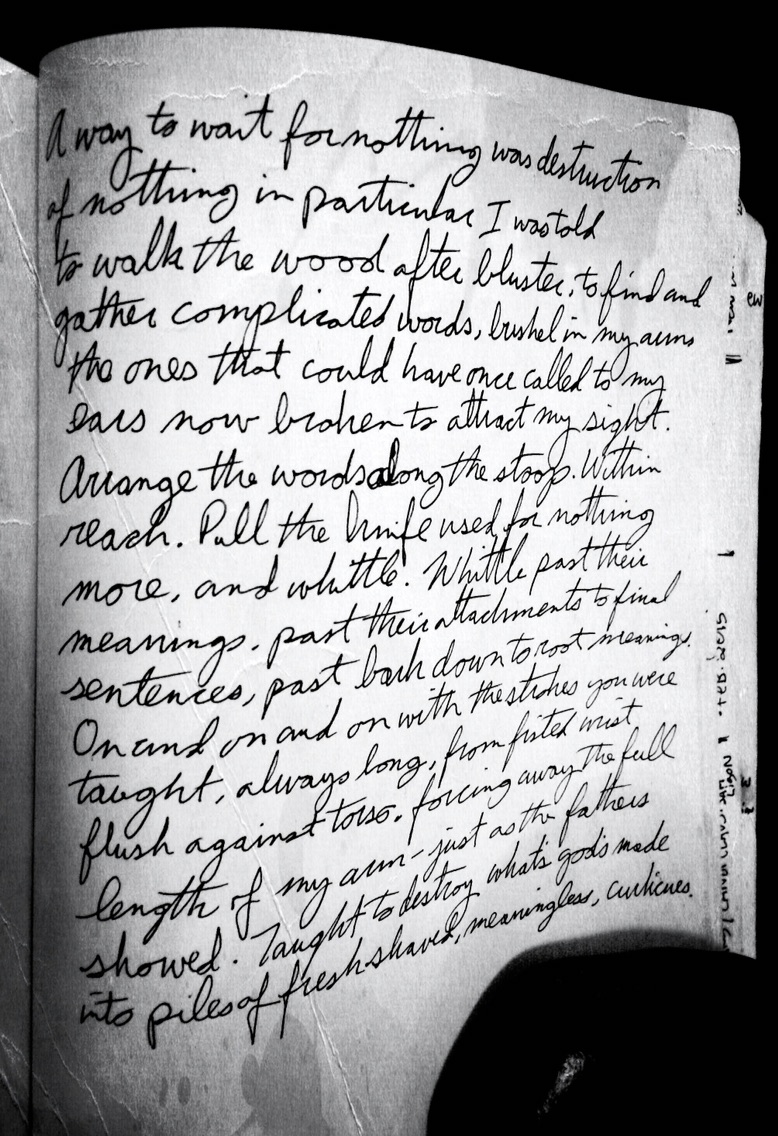 A way to wait for nothing was destruction
of nothing in particular I was told
to walk the wood after bluster, to find and
gather complicated words, bushel in my arms
the ones that could have once called to my
ears now broken to attract my sight.
Arrange the words along the stoop. Within
reach. Pull the knife used for nothing
more, and whittle. Whittle past their
meanings. past their attachments to final
sentences, past bark down to root meanings.
On and on and on with the strokes you were
taught, always long, from fisted wrist
flush against torso. forcing away the full
length of my arm - just as the fathers
showed. Taught to destroy what's god's made
into piles of fresh shaved, meaningless, curlicues.
ew